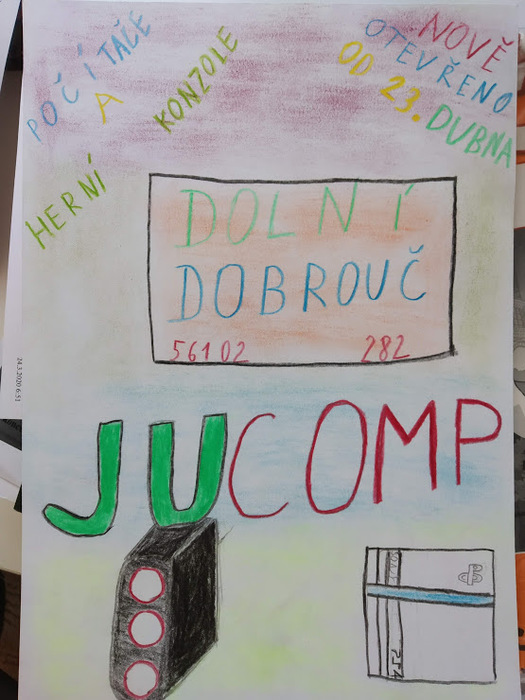 POČÍTAČE
A
HERNÍ
KONZOLE
NOVĚ
OTEVŘENO
OD 23. DUBNA
DOLNÍ
DOBROUČ
56102 282
JUCOMP
PS4
24.3.2020 6:51